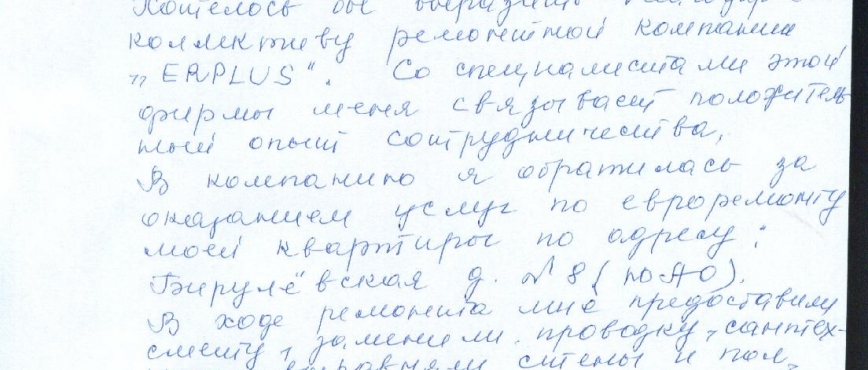 Хотелось бы выразить
коллективу ремонтной компании
„ERPLUS". Со специалистами этой
фирмы меня связывает положитель
ный опыт сотрудничества.
В компанию я обратилась за
оказанием услуг по евроремонту
моей квартиры по адресу:
Бирулёвская д. №8 (ЮАО).
В ходе ремонта мне предоставили
смету, заменили проводку, сантех-
стены и пол,